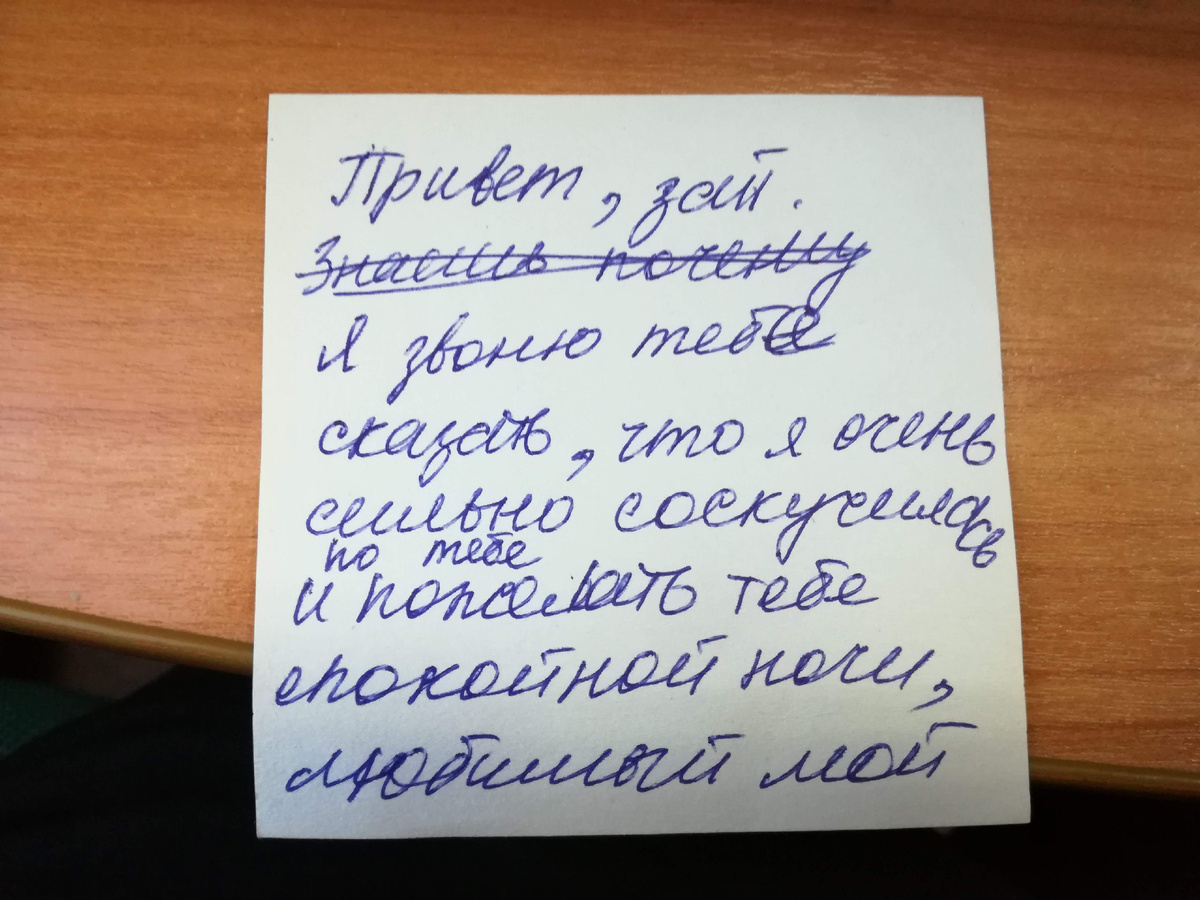 Привет, зай.
Знаешь почему
Я звоню тебе
сказать, что я очень
сильно соскучилась
по тебе
и пожелать тебе
спокойной ночи,
любимый мой